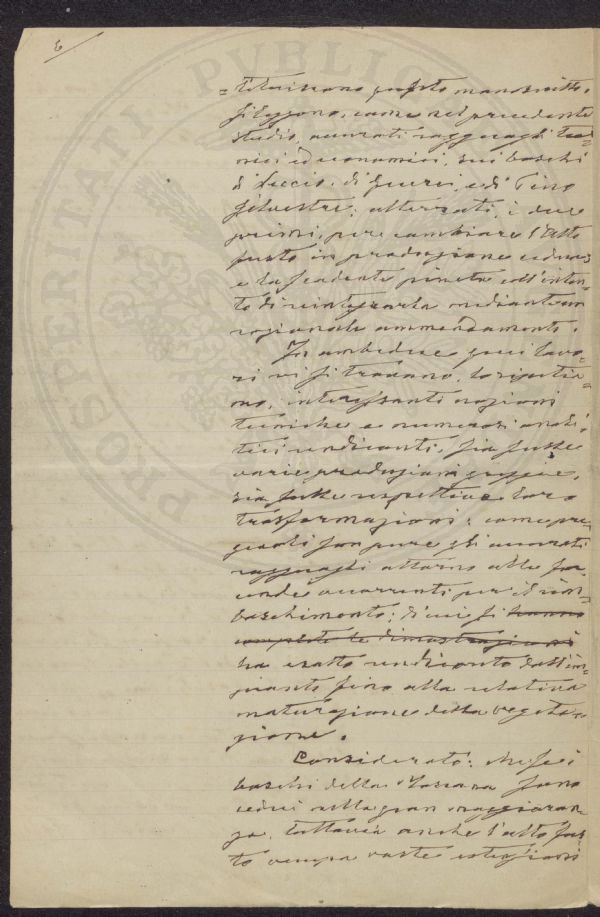 6
=tituiscono questo manoscritto,
si leggono, come nel precedente
studio, accurati ragguagli tec=
nici ed economici, sui boschi
di Leccio, di Querci, e di Pino
silvestre; alterati, i due
primi, per cambiare l'alto
fusto in produzione cedua;
e la scadente pineta coll'inten=
to di reintegrarla mediante un
razionale ammendamento.
In ambedue quei lavo=
ri vi si trovano, lo ripetia=
mo, interessanti nozioni
tecniche e numerosi anali=
tici rendiconti, sia sulle
varie produzioni gregge,
sia sulle respettive loro
trasformazioni; come pre=
gevoli son pure gli accurati
ragguagli attorno alle fac=
cende occorrenti per il rim=
boschimento; di cui si hanno
complete le dimostrazioni
ha esatto rendiconto dall'im=
pianto fino alla relativa
maturazione della vegeta=
zione.
Considerato: che se i
boschi della Toscana sono
cedui nella gran maggioran=
za, tuttavia anche l'alto fus=
to occupa vaste estensioni
PROSPERITATI PVBLICAE